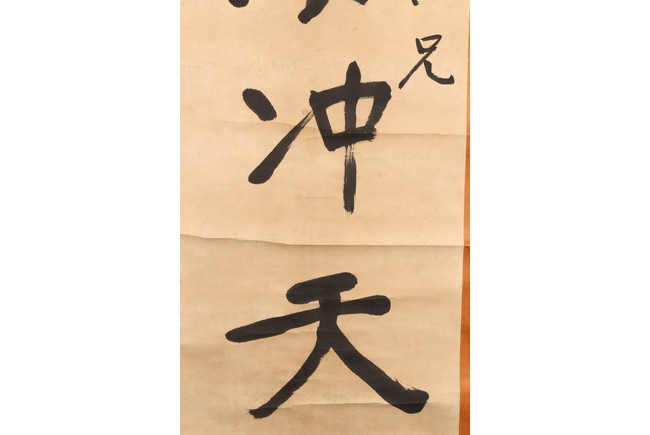 兄
冲天